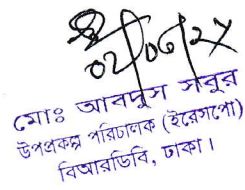 ০২/০৩/২৫
মোঃ আবদুস সবুর
উপপ্রকল্প পরিচালক (ইরেসপো)
বিআরডিবি, ঢাকা।